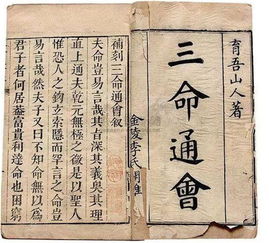 育吾山人著
三命通會
金陵李氏
補刻三命通會叙
夫命豈易言哉其旨深其義奧其理
直上通夫乾元無極之後是以聖人
惟恐人之鈎玄索隱而罕言之命豈
易言哉然夫子又曰不知命無以爲
君子者何居葢富貴利達命也困窮